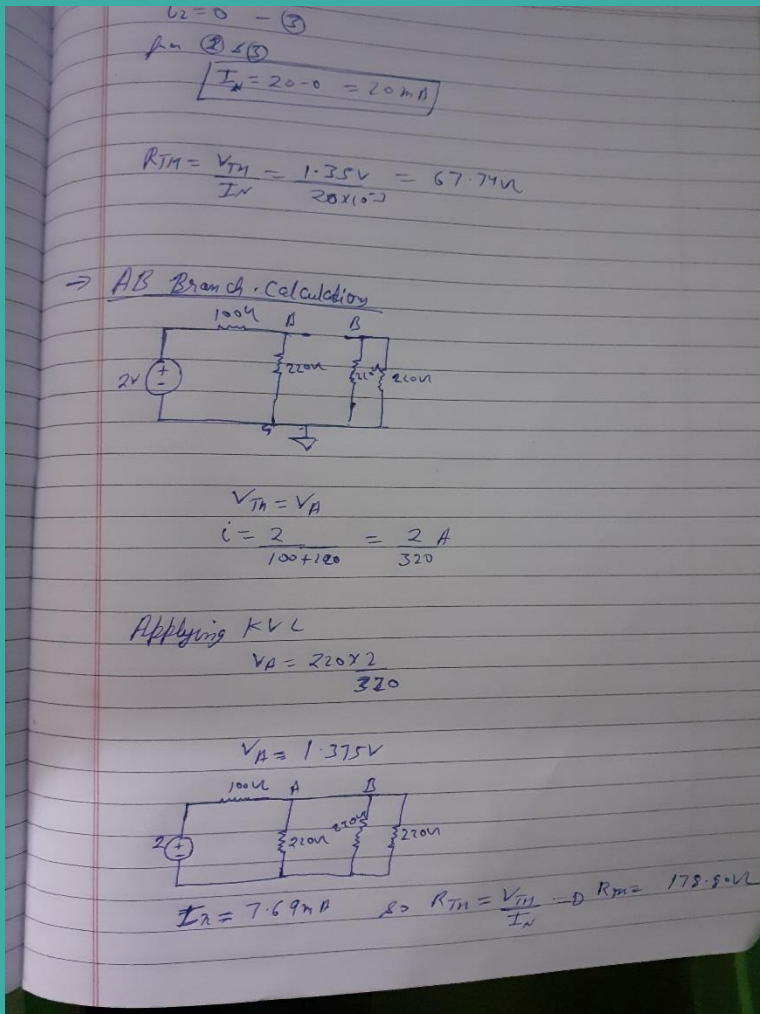 i2=0 - ③
from ② & ③
IN = 20-0 = 20mA
RTH = VTH / IN = 1.35V / 20x10-3 = 67.74Ω
→ AB Branch. Calculation
100Ω A B
2V + - 220Ω 220Ω 220Ω
VTh = VA
i = 2 / 100+220 = 2 / 320 A
Applying KVL
VA = 220x2 / 320
VA = 1.375V
100Ω A B
2 + - 220Ω 220Ω 220Ω
IN = 7.69mA so RTH = VTH / IN → RTH = 178.80Ω